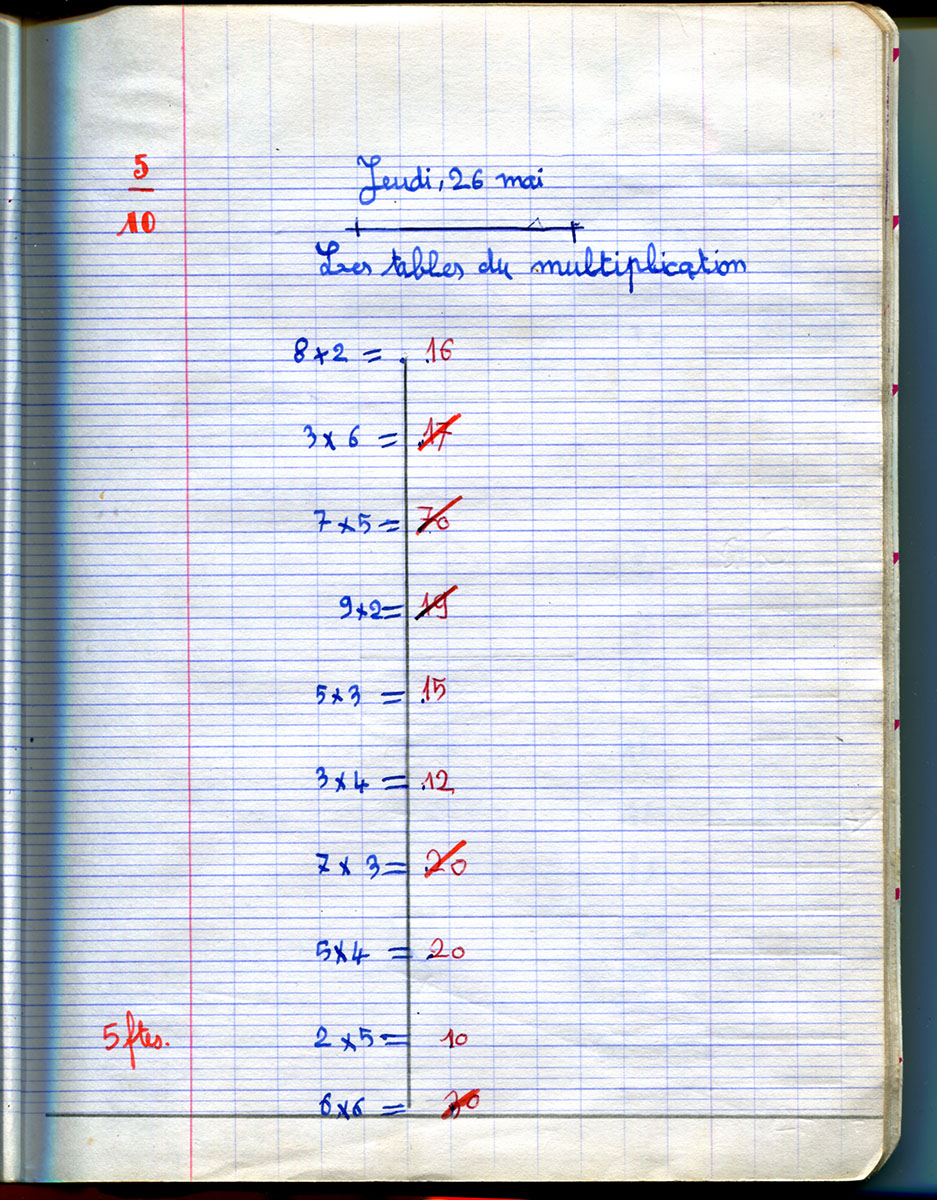 5
10
Jeudi, 26 mai
Les tables du multiplication
8 x 2 = 16
3 x 6 = 17
7 x 5 = 70
9 x 2 = 19
5 x 3 = 15
3 x 4 = 12
7 x 3 = 20
5 x 4 = 20
5 ftes. 2 x 5 = 10
6 x 6 =